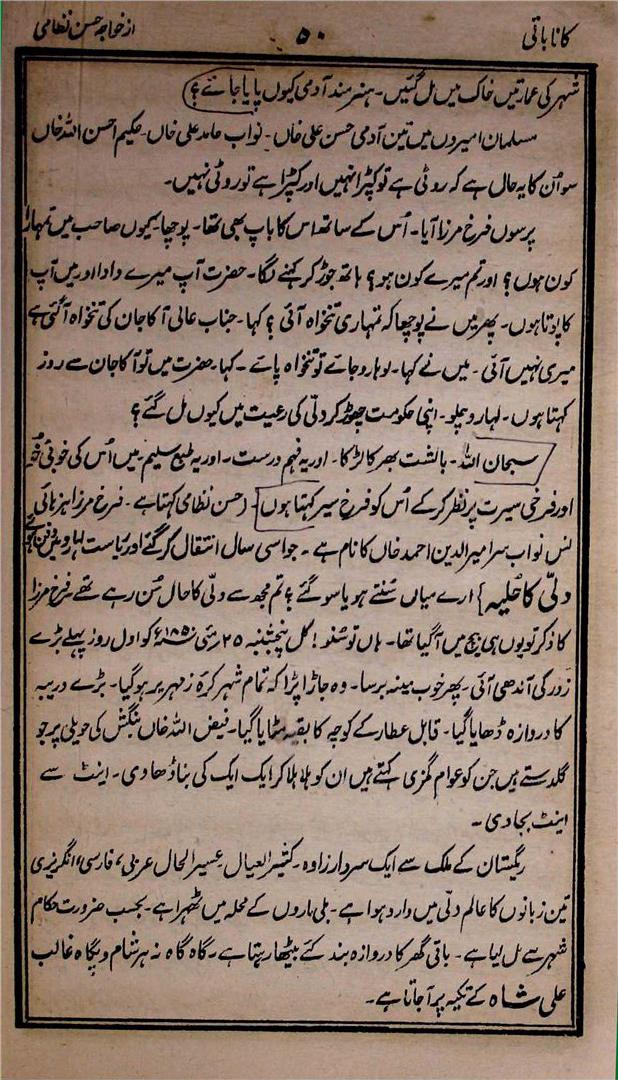 کانا باتی ۵۰ از خواجہ حسن نظامی
شہر کی عمارتیں خاک میں مل گئیں۔ ہنرمند آدمی کیوں پایا جائے؟
مسلمان امیروں میں تین آدمی حسن علی خاں۔ نواب حامد علی خاں۔ حکیم احسن اللہ خاں
سو اُن کا یہ حال ہے کہ روٹی ہے تو کپڑا نہیں اور کپڑا ہے تو روٹی نہیں۔
پرسوں فرخ مرزا آیا۔ اُس کے ساتھ اس کا باپ بھی تھا۔ پوچھا کیوں صاحب میں تمہارا
کون ہوں؟ اور تم میرے کون ہو؟ ہاتھ جوڑ کر کہنے لگا۔ حضرت آپ میرے دادا اور میں آپ
کا پوتا ہوں۔ پھر میں نے پوچھا کہ تمہاری تنخواہ آئی؟ کہا۔ جناب عالی آکا جان کی تنخواہ آ گئی ہے
میری نہیں آئی۔ میں نے کہا۔ لوہارو جائے تو تنخواہ پائے۔ کہا۔ حضرت میں تو آکا جان سے روز
کہتا ہوں۔ لہارو چلو۔ اپنی حکومت چھوڑ کر دلی کی رعیت میں کیوں مل گئے؟
سبحان اللہ۔ بالشت بھر کا لڑکا۔ اور یہ فہم درست۔ اور یہ طبع سلیم۔ میں اُس کی خوبئ خو
اور فرخی سیرت پر نظر کر کے اُس کو فرخ سیر کہتا ہوں۔ (حسن نظامی کہتا ہے۔ فرخ مرزا ہز ہائی
نس نواب سر امیر الدین احمد خاں کا نام ہے۔ جو اسی سال انتقال کر گئے اور ریاست لہارو میں دفن ہوئے)
دلّی کا حُلیہ} ارے میاں سُنتے ہو یا سو گئے؟ تم مجھ سے دلّی کا حال سُن رہے تھے فرخ مرزا
کا ذکر تو یوں ہی بیچ میں آ گیا تھا۔ ہاں تو سُنو! کل پنجشنبہ ۲۵ مئی کو اول روز پہلے بڑے
زور کی آندھی آئی۔ پھر خوب مینہ برسا۔ وہ جاڑا پڑا کہ تمام شہر کرّۂ زمہریر ہو گیا۔ بڑے دریبہ
کا دروازہ ڈھایا گیا۔ قابل عطار کے کوچہ کا بقیہ مٹایا گیا۔ فیض اللہ خاں بنگش کی حویلی پر جو
گلدستے ہیں جن کو عوام گمزی کہتے ہیں ان کو ہلا ہلا کر ایک ایک کی بنا ڈھا دی۔ اینٹ سے
اینٹ بجا دی۔
ریگستان کے ملک سے ایک سردار زادہ۔ کثیر العیال۔ عسیر الحال عربی، فارسی، انگریزی
تین زبانوں کا عالم دلّی میں وارد ہوا ہے۔ بلی ماروں کے محلہ میں ٹھہرا ہے۔ بحسب ضرورت حکام
شہر سے مل لیا ہے۔ باقی گھر کا دروازہ بند کئے بیٹھا رہتا ہے۔ گاہ گاہ نہ ہر شام و پگاہ غالب
علی شاہ کے تکیہ پر آ جاتا ہے۔